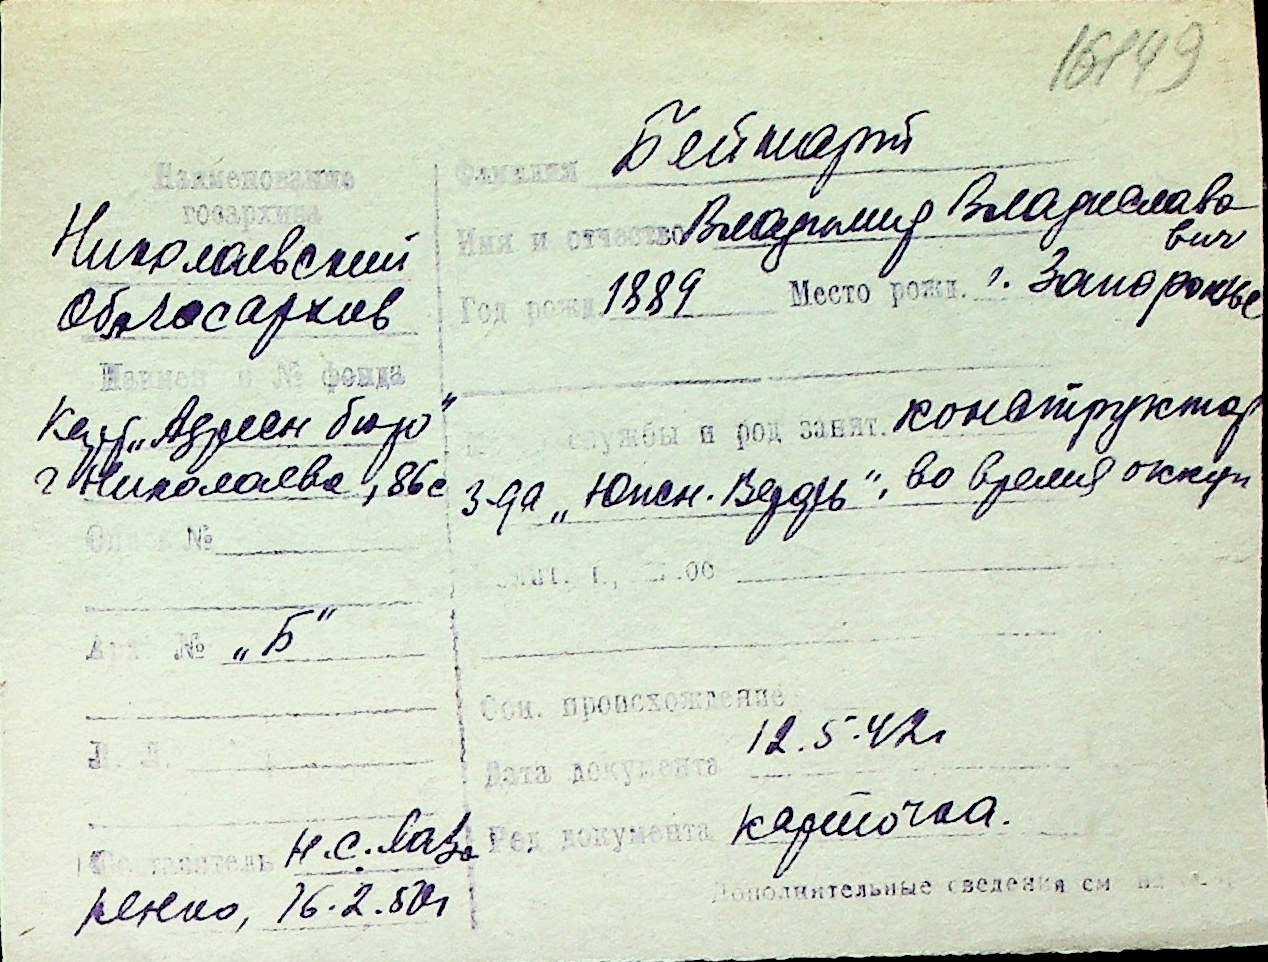 16149
Наименование
госархива
Николаевский
Облгосархив
Наимен и № фонда
"Адресн бюро"
г Николаева, 86с
Опись №
Арх. № "Б"
Л. Л.
Составитель Н.С. Лаза
ренко, 16.2.50г
Фамилия Беймарт
Имя и отчество Владимир Владиславо
вич
Год рожд. 1889 Место рожд. г. Запорожье
службы и род занят. конструктор
з-да "Южн. Верфь", во время оккуп
Соц. происхождение
Дата документа 12.5.42г
Род документа карточка.
Дополнительные сведения см